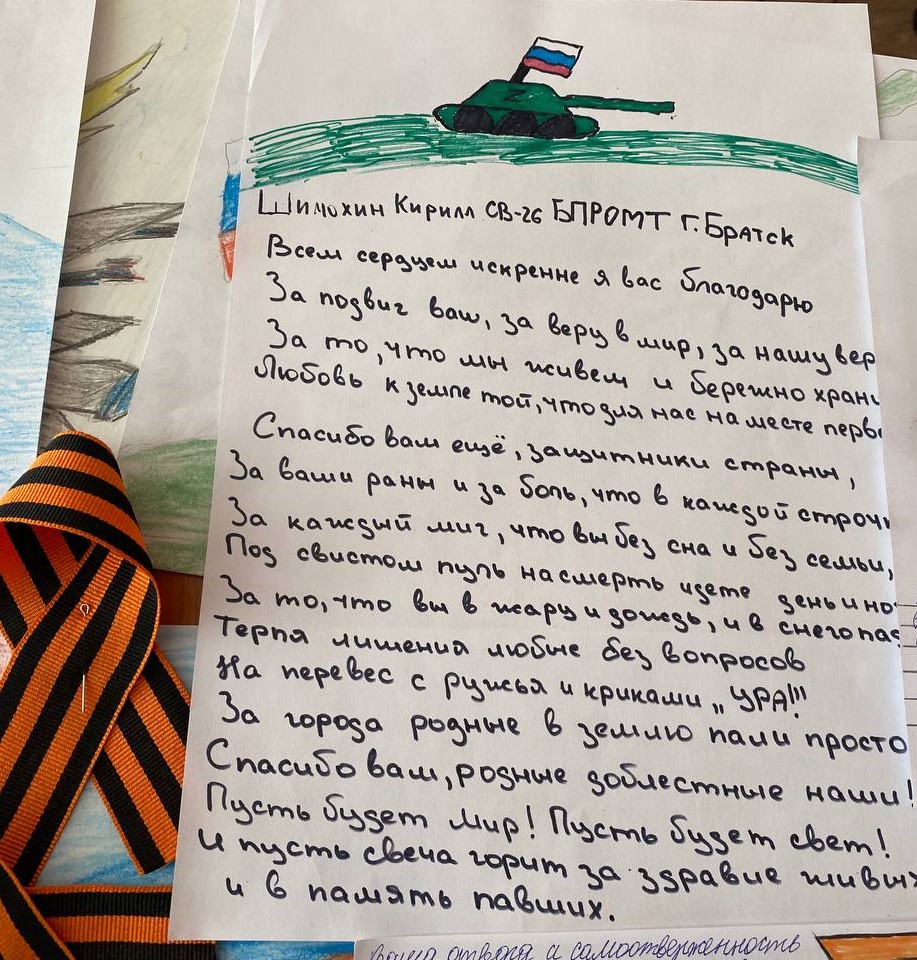 Z
Шимохин Кирилл СВ-26 БПРОМТ г. Братск
Всем сердцем искренне я вас благодарю
За подвиг ваш, за веру в мир, за нашу вер
За то, что мы живем и бережно храни
Любовь к земле той, что для нас на месте перво
Спасибо вам ещё, защитники страны,
За ваши раны и за боль, что в каждой строчк
За каждый миг, что вы без сна и без семьи,
Под свистом пуль насмерть идете день и но
За то, что вы в жару и дождь, и в снегопад
Терпя лишения любые без вопросов
На перевес с ружья и криками „УРА!!!
За города родные в землю пали просто
Спасибо вам, родные доблестные наши!
Пусть будет мир! Пусть будет свет!
И пусть свеча горит за здравие живых
и в память павших.
отвага и самоотверженность